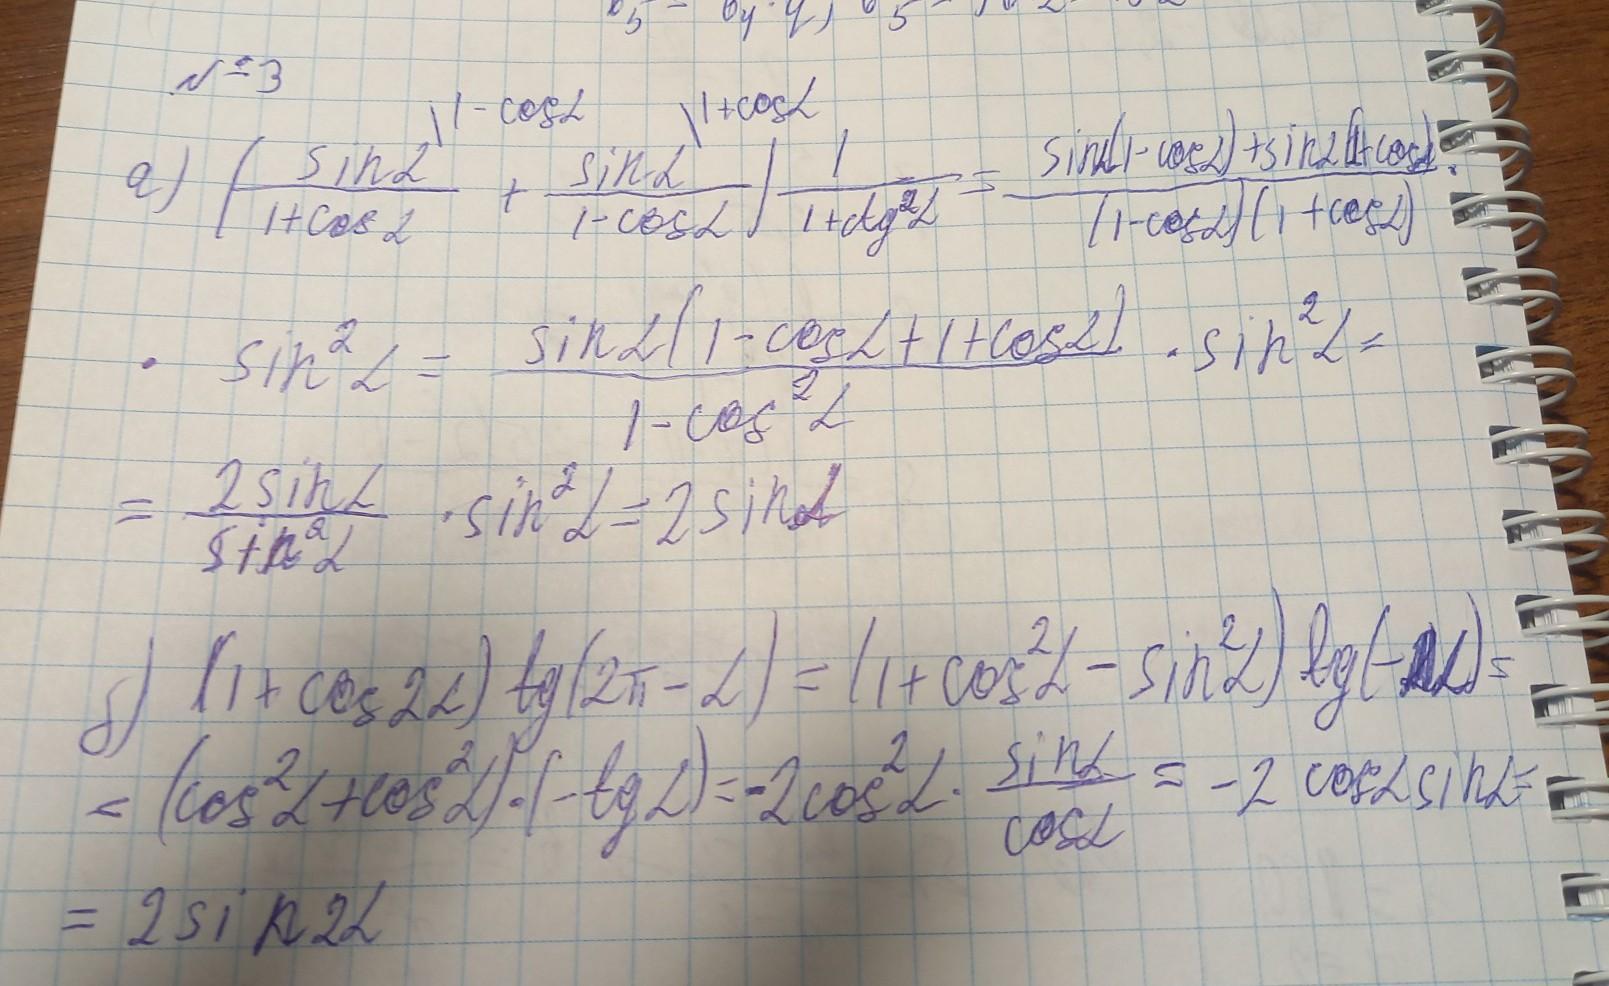 b₅ = b₄ · q, b₅ =
№3
\1-cosα \1+cosα
а) (sinα/(1+cosα) + sinα/(1-cosα)) 1/(1+ctg²α) = (sinα(1-cosα)+sinα(1+cosα))/((1-cosα)(1+cosα)) ·
· sin²α = sinα(1-cosα+1+cosα)/(1-cos²α) · sin²α =
= 2sinα/sin²α · sin²α = 2sinα
б) (1+cos2α) tg(2π-α) = (1+cos²α-sin²α) tg(-α) =
= (cos²α+cos²α)·(-tgα) = -2cos²α · sinα/cosα = -2 cosα sinα =
= 2sin2α